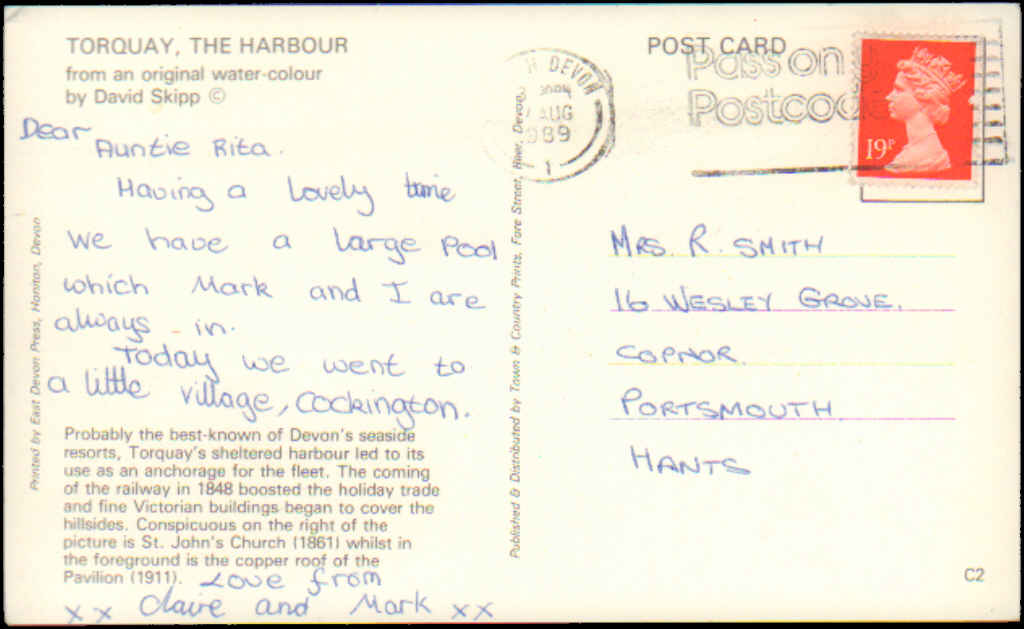 TORQUAY, THE HARBOUR
from an original water-colour
by David Skipp ©
Dear
Auntie Rita.
Having a Lovely time
We have a large pool
which Mark and I are
always in.
Today we went to
a little village, Cockington.
Probably the best-known of Devon's seaside
resorts, Torquay's sheltered harbour led to its
use as an anchorage for the fleet. The coming
of the railway in 1848 boosted the holiday trade
and fine Victorian buildings began to cover the
hillsides. Conspicuous on the right of the
picture is St. John's Church (1861) whilst in
the foreground is the copper roof of the
Pavilion (1911).
Love from
x x Claire and Mark x x
Printed by East Devon Press, Honiton, Devon
Published & Distributed by Town & Country Prints, Fore Street, Hiver, Devon
DEVON
AUG
1989
1
POST CARD
Pass on
Postcode
19P
MRS. R. SMITH
16 WESLEY GROVE.
COPNOR.
PORTSMOUTH.
HANTS
C2